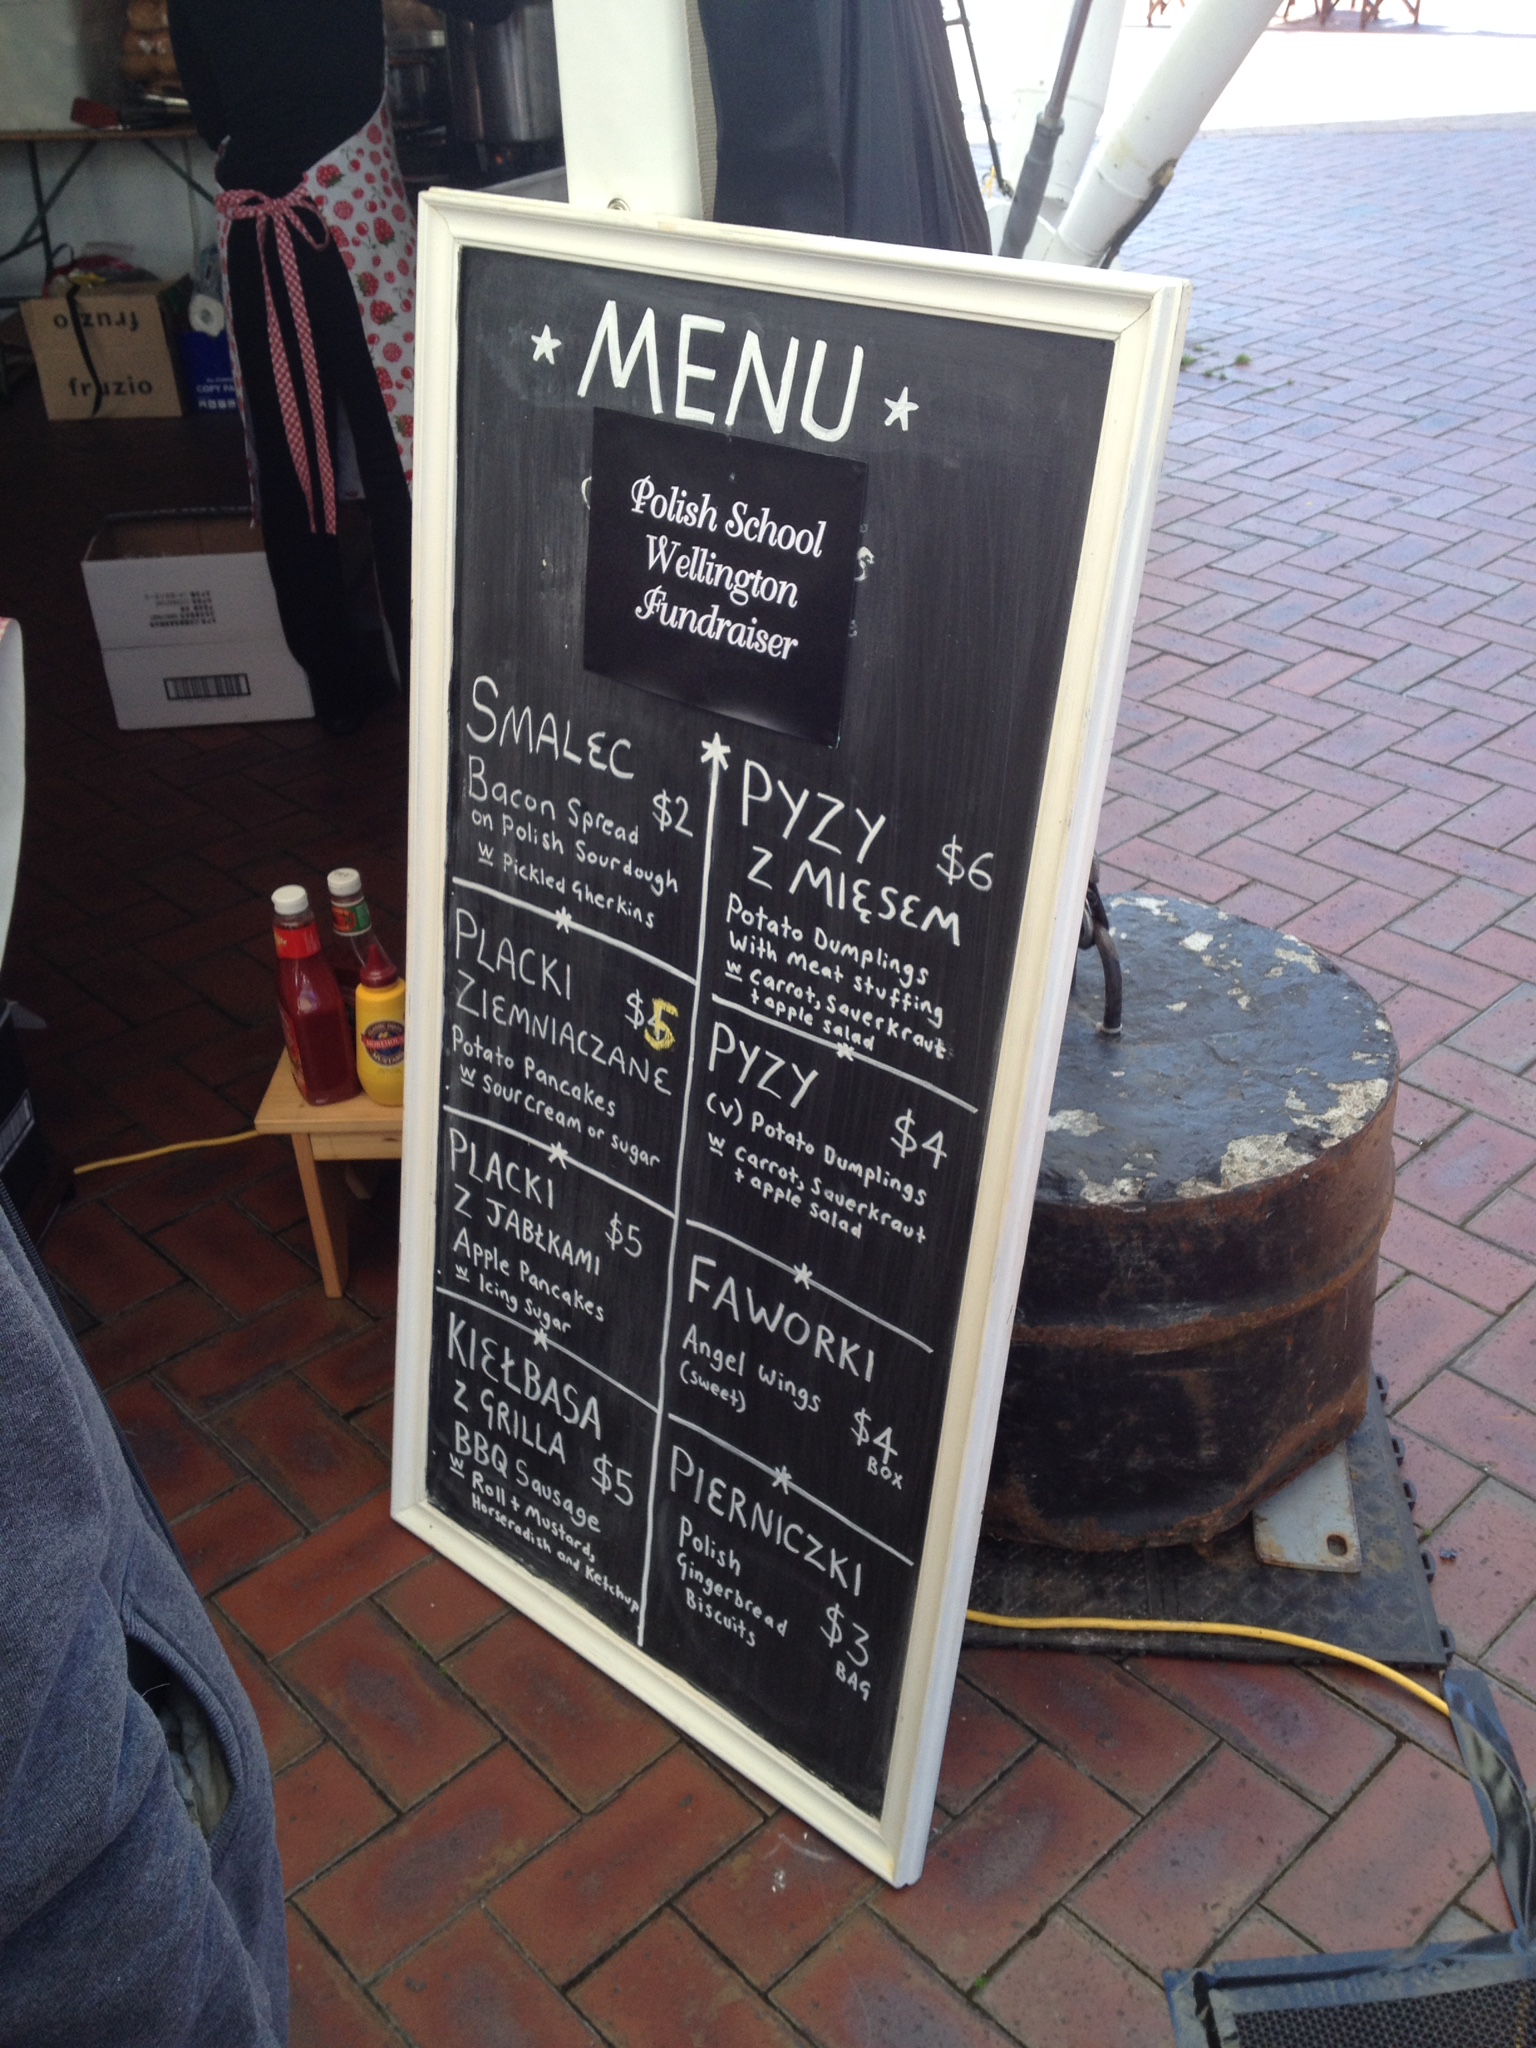 MENU
Polish School
Wellington
Fundraiser
SMALEC
Bacon Spread $2
on Polish Sourdough
w Pickled Gherkins
PLACKI
ZIEMNIACZANE $5
Potato Pancakes
w Sour Cream or sugar
PLACKI
Z JABŁKAMI $5
Apple Pancakes
w Icing Sugar
KIEŁBASA
Z GRILLA $5
BBQ Sausage
w Roll + Mustard,
Horseradish and Ketchup
PYZY $6
Z MIĘSEM
Potato Dumplings
With Meat Stuffing
w Carrot, Sauerkraut
+ apple salad
PYZY $4
(v) Potato Dumplings
w Carrot, Sauerkraut
+ apple salad
FAWORKI
Angel Wings
(Sweet) $4
BOX
PIERNICZKI
Polish
Gingerbread
Biscuits $3
BAG
fruzio
fruzio